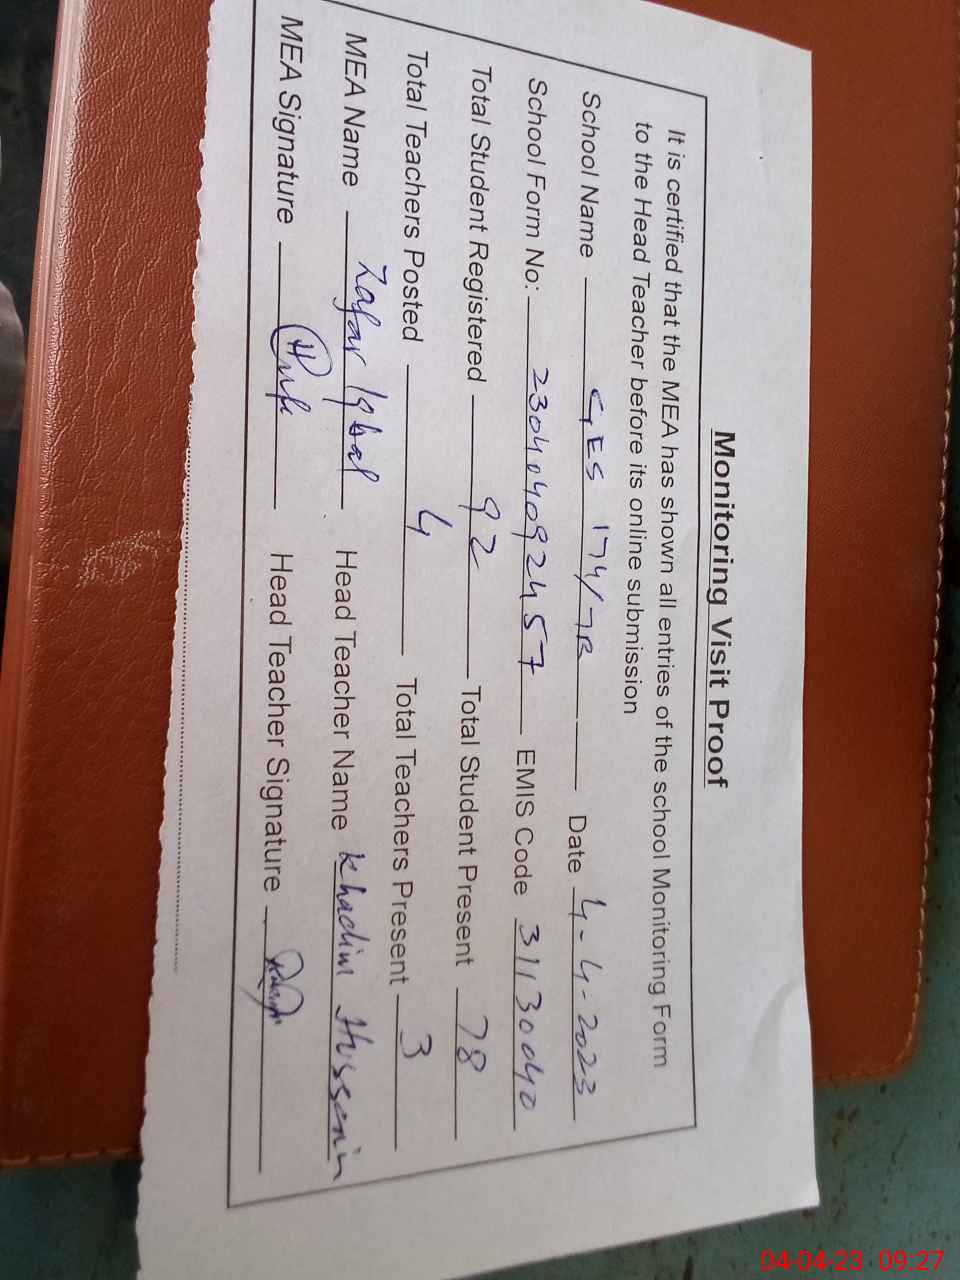 Monitoring Visit Proof
It is certified that the MEA has shown all entries of the school Monitoring Form
to the Head Teacher before its online submission
School Name GES 174/7R Date 4-4-2023
School Form No: 230404092457 EMIS Code 31130040
Total Student Registered 92 Total Student Present 78
Total Teachers Posted 4 Total Teachers Present 3
MEA Name Zafar Iqbal Head Teacher Name Khadim Hussain
MEA Signature Head Teacher Signature
04-04-23 09:27